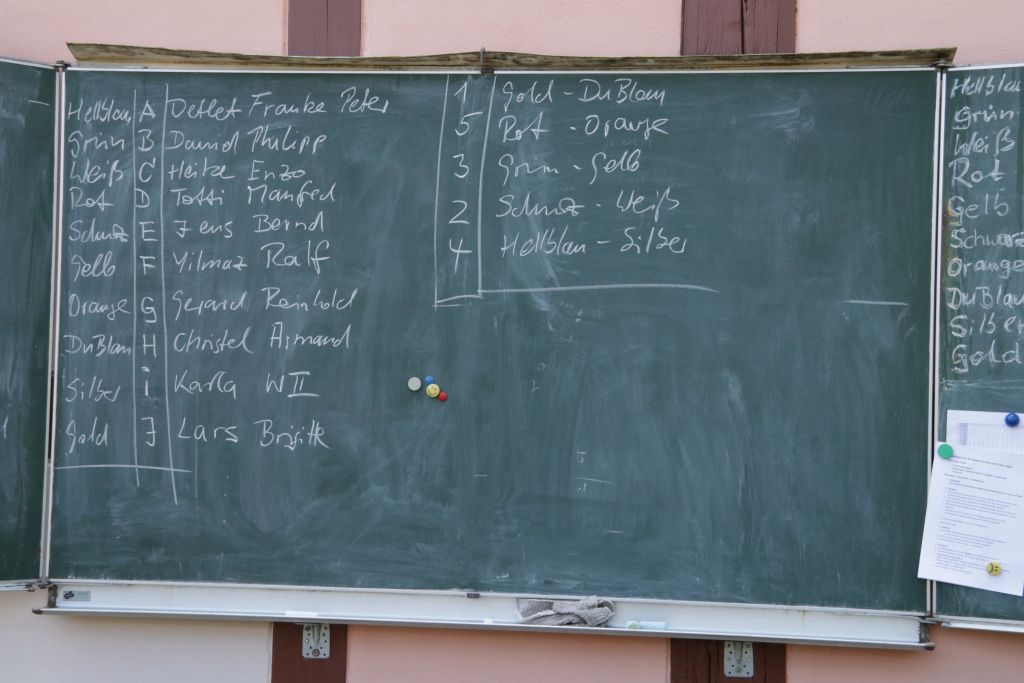 Hellblau A Detlef Frauke Peter
Grün B Daniel Philipp
Weiß C Heike Enzo
Rot D Totti Manfred
Schwarz E Jens Bernd
Gelb F Yilmaz Ralf
Orange G Gerard Reinhold
DuBlau H Christel Armand
Silber i Karla WII
Gold J Lars Brigitte
1 Gold - DuBlau
5 Rot - Orange
3 Grün - Gelb
2 Schwarz - Weiß
4 Hellblau - Silber
Hellblau
Grün
Weiß
Rot
Gelb
Schwarz
Orange
DuBlau
Silber
Gold